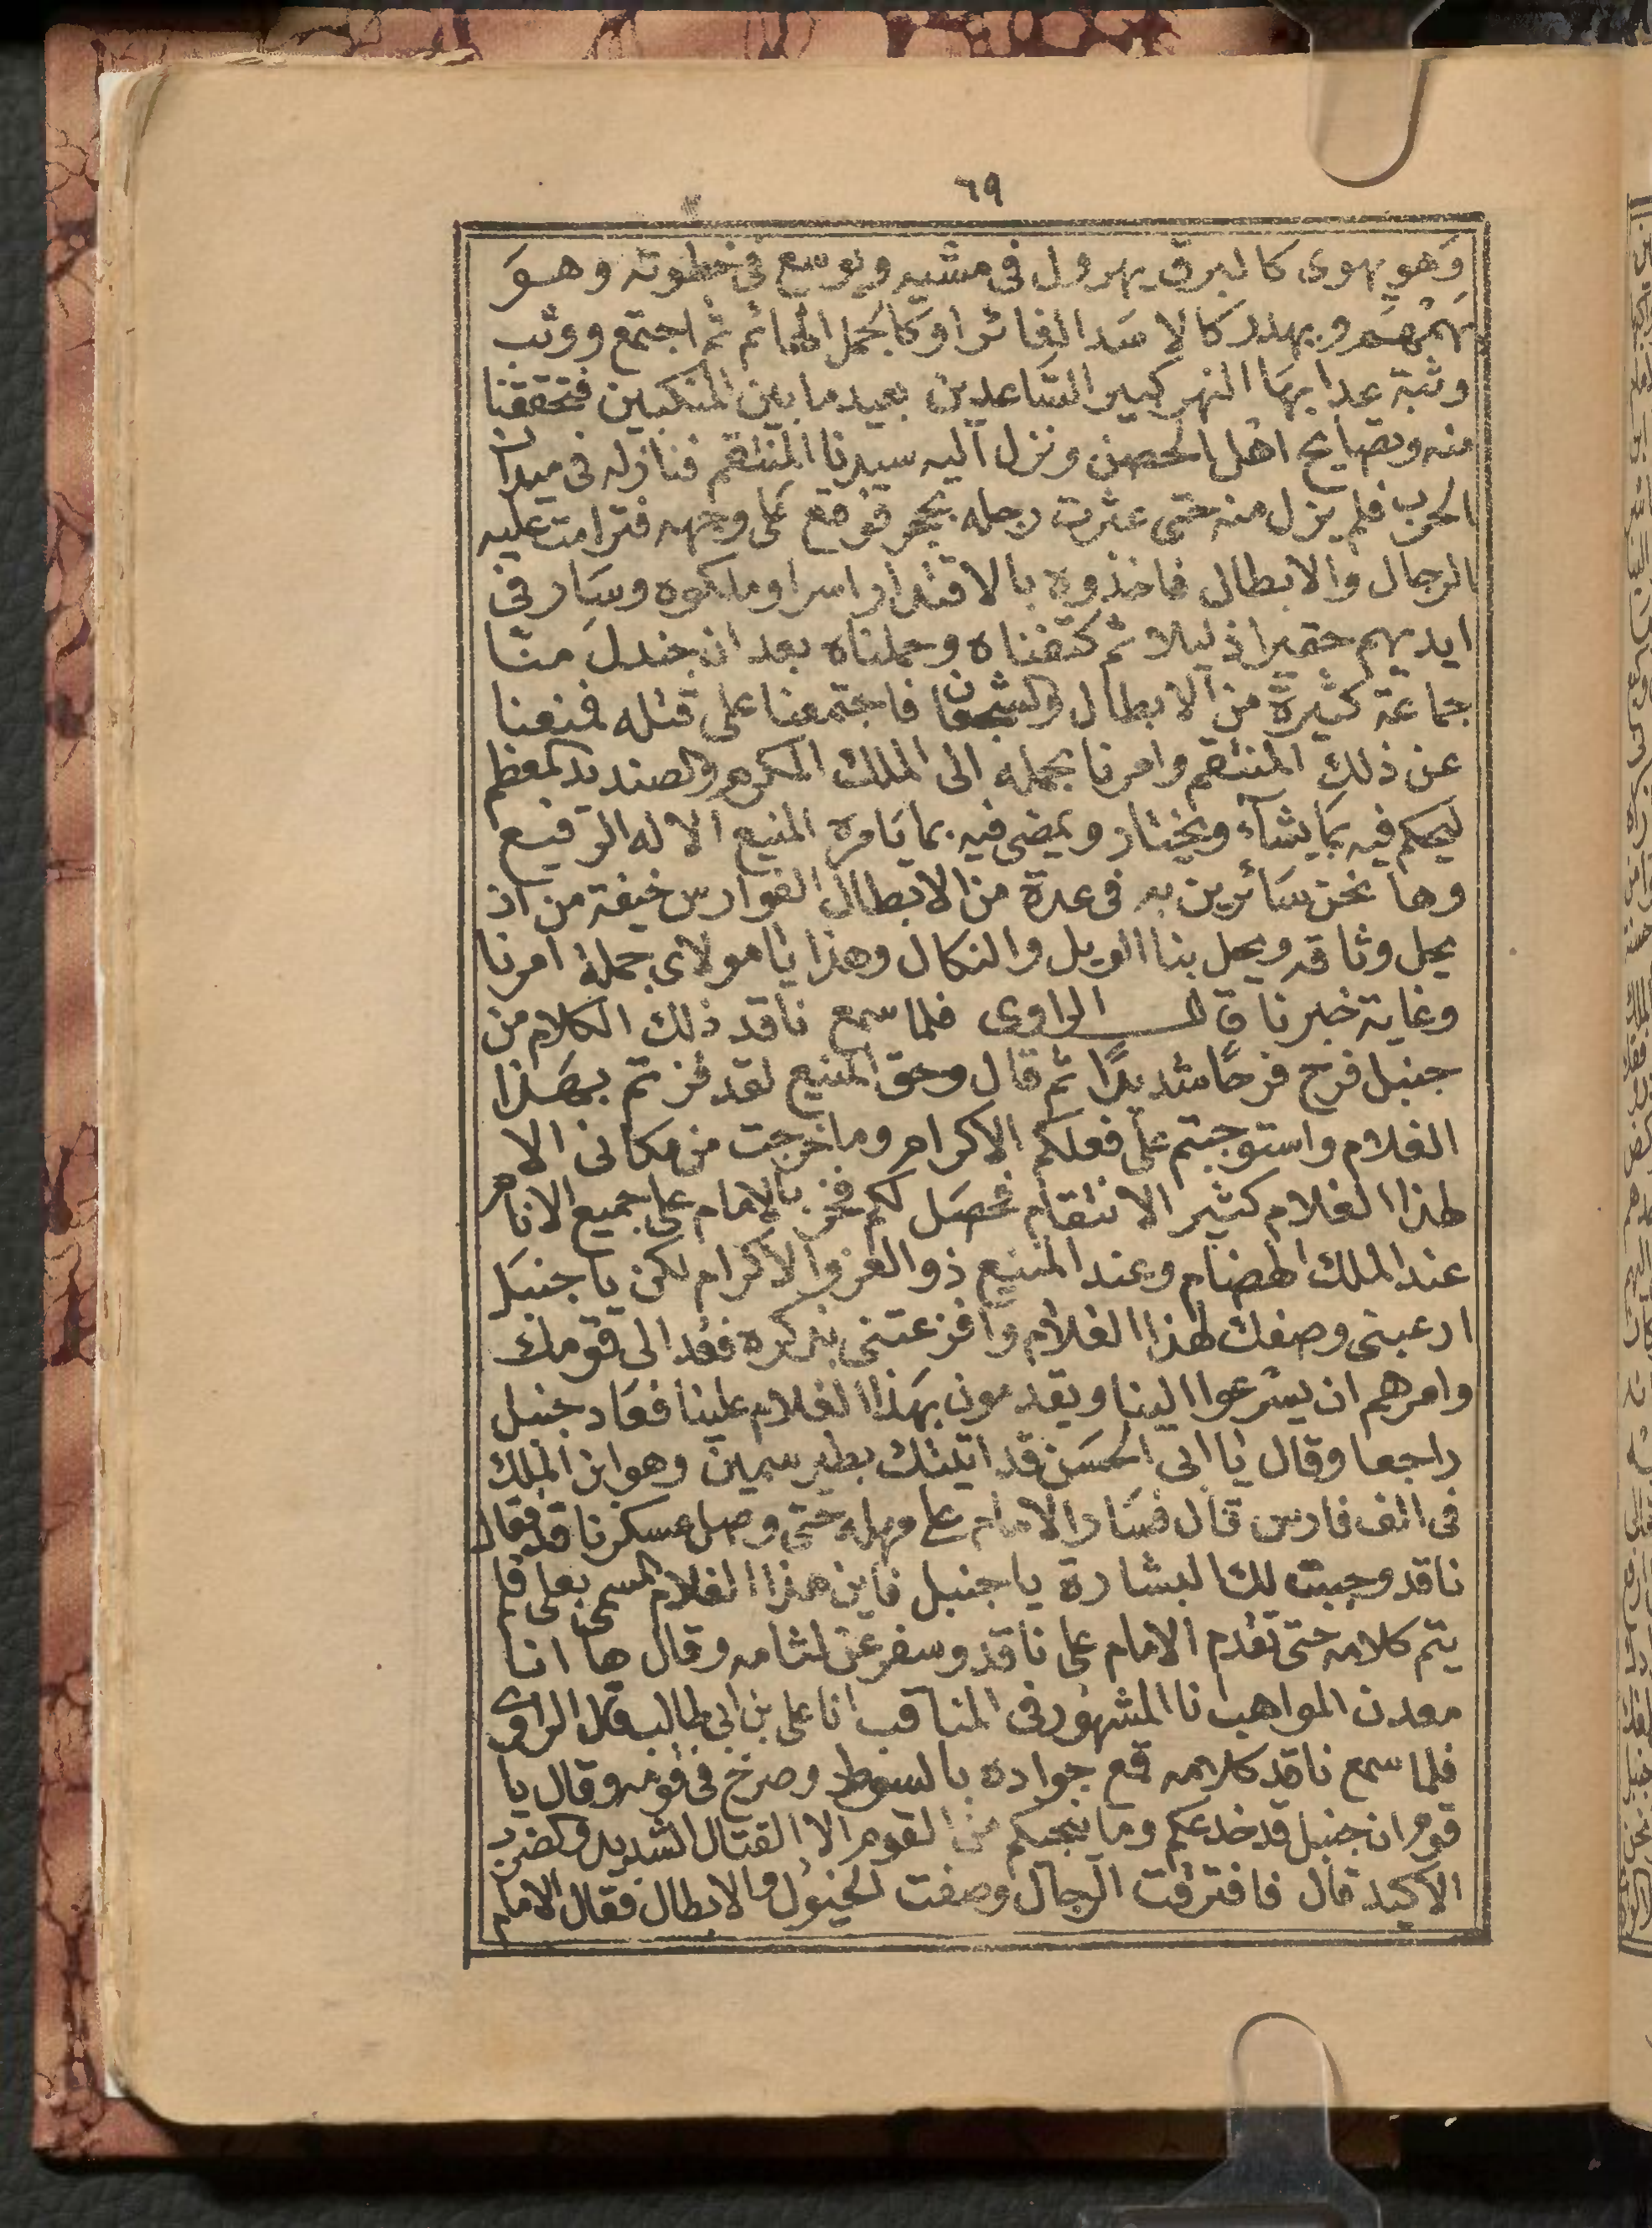 ٦٩
وَهو يهوى كالبرق يهرول فى مشيه ويوسع فى خطوته وهـوَ
يهمهم ويهدر كالاسَد الغائر اوكالجمل الهائم ثم اجتمع ووثب
وثبة عدا بهَا النهر كبير السَّاعدين بعيد ما بين المنكبين فتحققنا
منه وتصايح اهل الحصن ونزل اليه سيدنا المنتقم فنازله فى ميدان
الحرب فلم يزل منه حتى عثرت رجله بحجر فوقع على وجهه فترامت عليه
الرجال والابطال فاخذوه بالاقتدار اسرا وملكوه وسَار فى
ايديهم حقيرا ذليلا ثم كتفناه وحملناه بعد ان جندل منّا
جماعة كثيرة من الابطال والشجعان فاجتمعنا على قتله فمنعنا
عن ذلك المنتقم وامرنا بحمله الى الملك المكرم والصنديد المعظم
ليحكم فيه بمَا يشآء ويختار ويمضى فيه بما يَامره المنيع الاله الرفيع
وها نحن سَائرين به فى عدة من الابطال الفوارس خيفة من ان
يحل وثاقه ويحل بنا الويل والنكال وهذا يا مولاى جملة امرنا
وغاية خبرنا قال الراوى فلما سمع ناقد ذلك الكلام من
جنبل فرح فرحًا شديدًا ثم قال وحق المنيع لقد فزتم بهَذا
الغلام واستوجبتم على فعلكم الاكرام وما خرجت من مكانى الا
لهذا الغلام كثير الانتقام فحصَل لكم فخر بالامام على جميع الانام
عند الملك الهضام وعند المنيع ذو العز والاكرام لكن يا جنبَل
ارعبنى وصفك لهذا الغلام وافزعتنى بذكره فعُد الى قومك
وامرهم ان يسْرعوا الينا ويقدمون بهَذا الغلام علينا فعَاد جنبل
راجعا وقال يا ابى الحسَن قد اتيتك بطير سمين وهو ابن الملك
فى الف فارس قال فسَار الامام على مهله حتى وصل عسكر ناقد فقال
ناقد وجبت لك البشارة يا جنبل فاين هذا الغلام المسمى بعلى فلم
يتم كلامه حتى تقدم الامام على ناقد وسفر عن لثامه وقال ها انا
معدن المواهب انا المشهور فى المناقب انا على بن ابى طالب قال الراوى
فلما سمع ناقد كلامه قمع جواده بالسوط وصرخ فى قومه وقال يا
قوم ان جنبل قد خدعكم وما ينجيكم من القوم الا القتال الشديد والضرب
الاكيد قال فافترقت الرجال وصفت الخيول والابطال فقال الامام